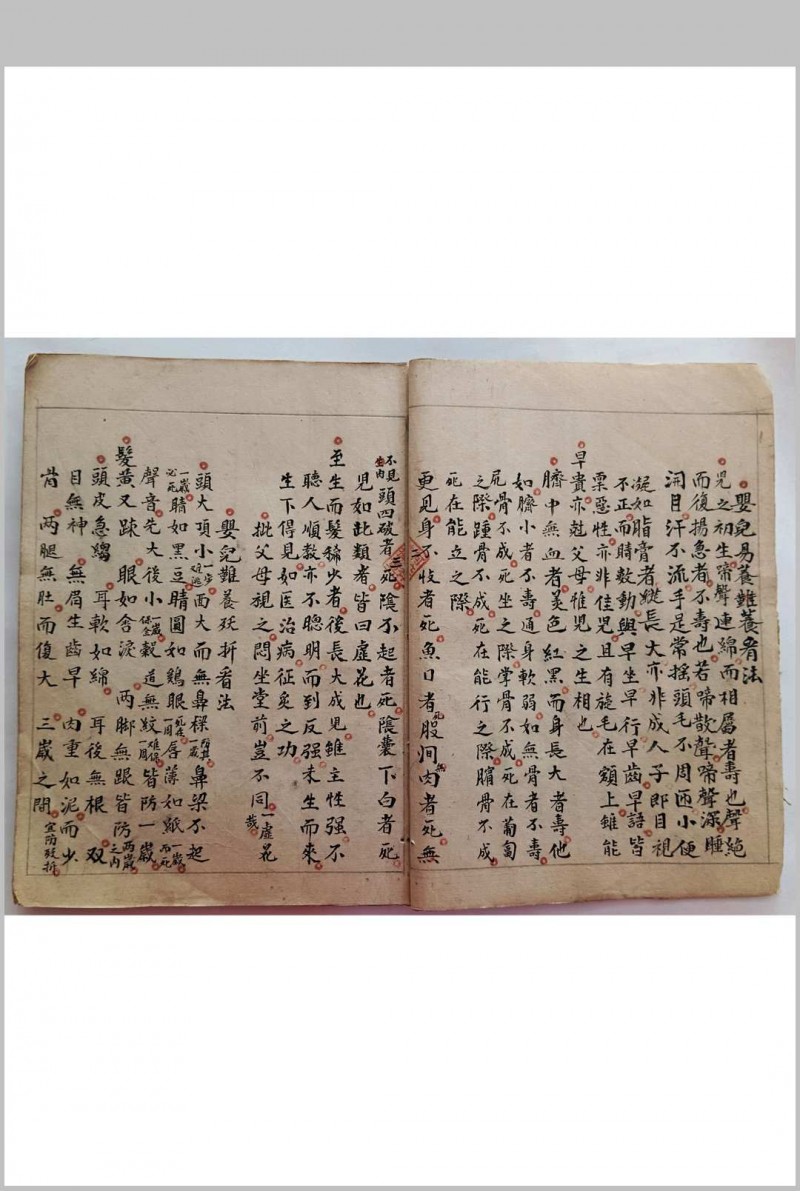 嬰兒易養難養看法
兒之初生啼聲連綿而相屬者壽也聲絕
而復揚急者不壽也若啼散聲啼聲深腫
開目汗不流手足常搖頭毛不周匝小便
凝如脂膏者縱長大亦非成人子即目視
不正而睛数動與早坐早行早齒早語皆
稟惡性亦非佳児且有旋毛在額上雖能
早貴亦尅父母稚児之生相也
臍中無血者羙色紅黑而身長大者壽他
如臍小者不壽通身軟弱如無骨者不壽
尻骨不成死坐之際掌骨不成死在葡匐
之際踵骨不成死在能行之際臏骨不成
死在能立之際
更見身不收者死魚口者死股间肉者死無
不見生肉頭四破者死陰不起者死陰囊下白者死
児如此類者皆曰虛花也
至生而髮稀少者後長大成児雖主性强不
聽人順教亦不聰明而到反强未生而來
生下得見如医治病征炙之功
批父母視之悶坐堂前豈不同一虛花哉
嬰兒難養殀折看法
頭大項小一步难過面大而無鼻樑一歲鼻梁不起
一歲必死睛如黑豆睛圓如鷄眼一月唇薄如紙一歲而死
聲音先大後小保全穀道無紋一月皆防一歲
髮黄又踈 眼如含淚 两脚無跟皆防两歲之内
頭皮急縐 耳軟如綿 耳後無根 双
目無神 無眉生齒早 肉重如泥而少
两腿無肚而復大 三歲之間宜防殀折